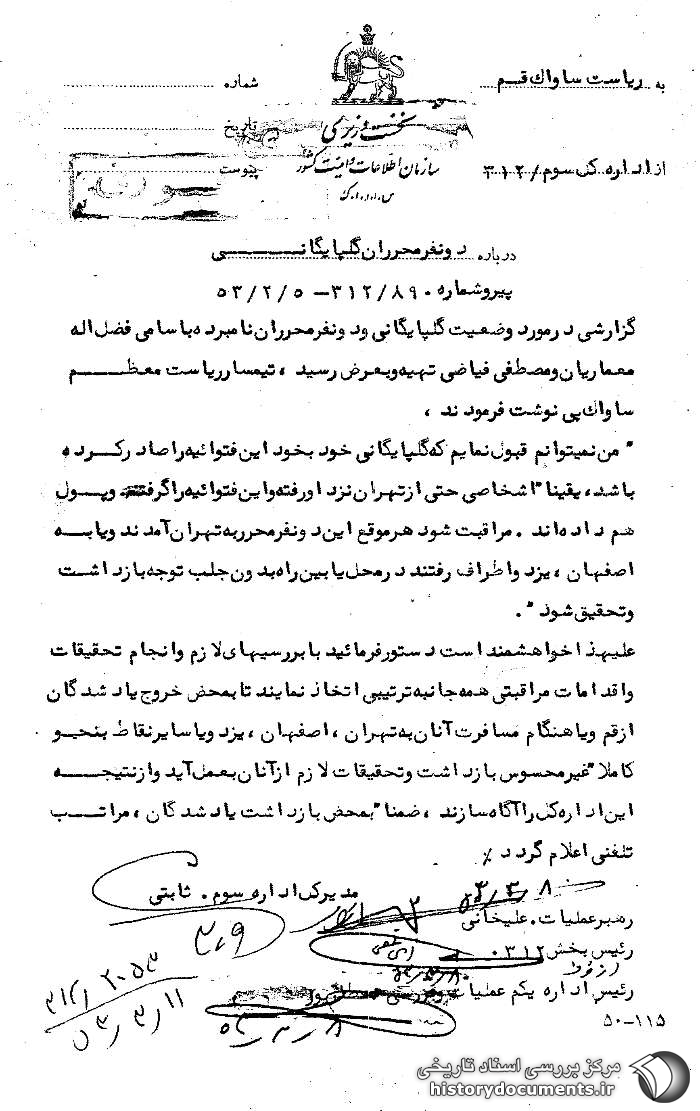 به ریاست ساواک قم
شماره
نخست وزیری
تاریخ
سازمان اطلاعات و امنیت کشور
از اداره کل سوم / ۳۱۲
پیوست
س.ا.و.ا.ک
درباره دونفر محرران گلپایگانی
پیرو شماره ۳۱۲/۸۹۰ - ۵۳/۲/۵
گزارشی در مورد وضعیت گلپایگانی و دونفر محرران نامبرده باسامی فضل اله
معماریان و مصطفی فیاضی تهیه و بعرض رسید ، تیمسار ریاست معظم
ساواک پی نوشت فرمودند ،
" من نمیتوانم قبول نمایم که گلپایگانی خود بخود این فتوائیه را صادر کرده
باشد، یقینا" اشخاصی حتی از تهران نزد او رفته و این فتوائیه را گرفته و پول
هم داده اند . مراقبت شود هر موقع این دونفر محرر به تهران آمدند ویا به
اصفهان ، یزد و اطراف رفتند در محل یا بین راه بدون جلب توجه بازداشت
و تحقیق شود " .
علیهذا خواهشمند است دستور فرمائید با بررسیهای لازم و انجام تحقیقات
و اقدامات مراقبتی همه جانبه ترتیبی اتخاذ نمایند تا بمحض خروج یاد شدگان
از قم ویا هنگام مسافرت آنان به تهران ، اصفهان ، یزد ویا سایر نقاط بنحو
کاملا" غیر محسوس بازداشت و تحقیقات لازم از آنان بعمل آید و از نتیجه
این اداره کل را آگاه سازند ، ضمنا" بمحض بازداشت یاد شدگان ، مراتب
تلفنی اعلام گردد ٪
مدیرکل اداره سوم . ثابتی
رهبر عملیات . علیخانی
رئیس بخش ۳۱۲
رئیس اداره یکم عملیات و بررسی
۵۳/۳/۱۱
۵۰-۱۱۵
مرکز بررسی اسناد تاریخی
historydocuments.ir